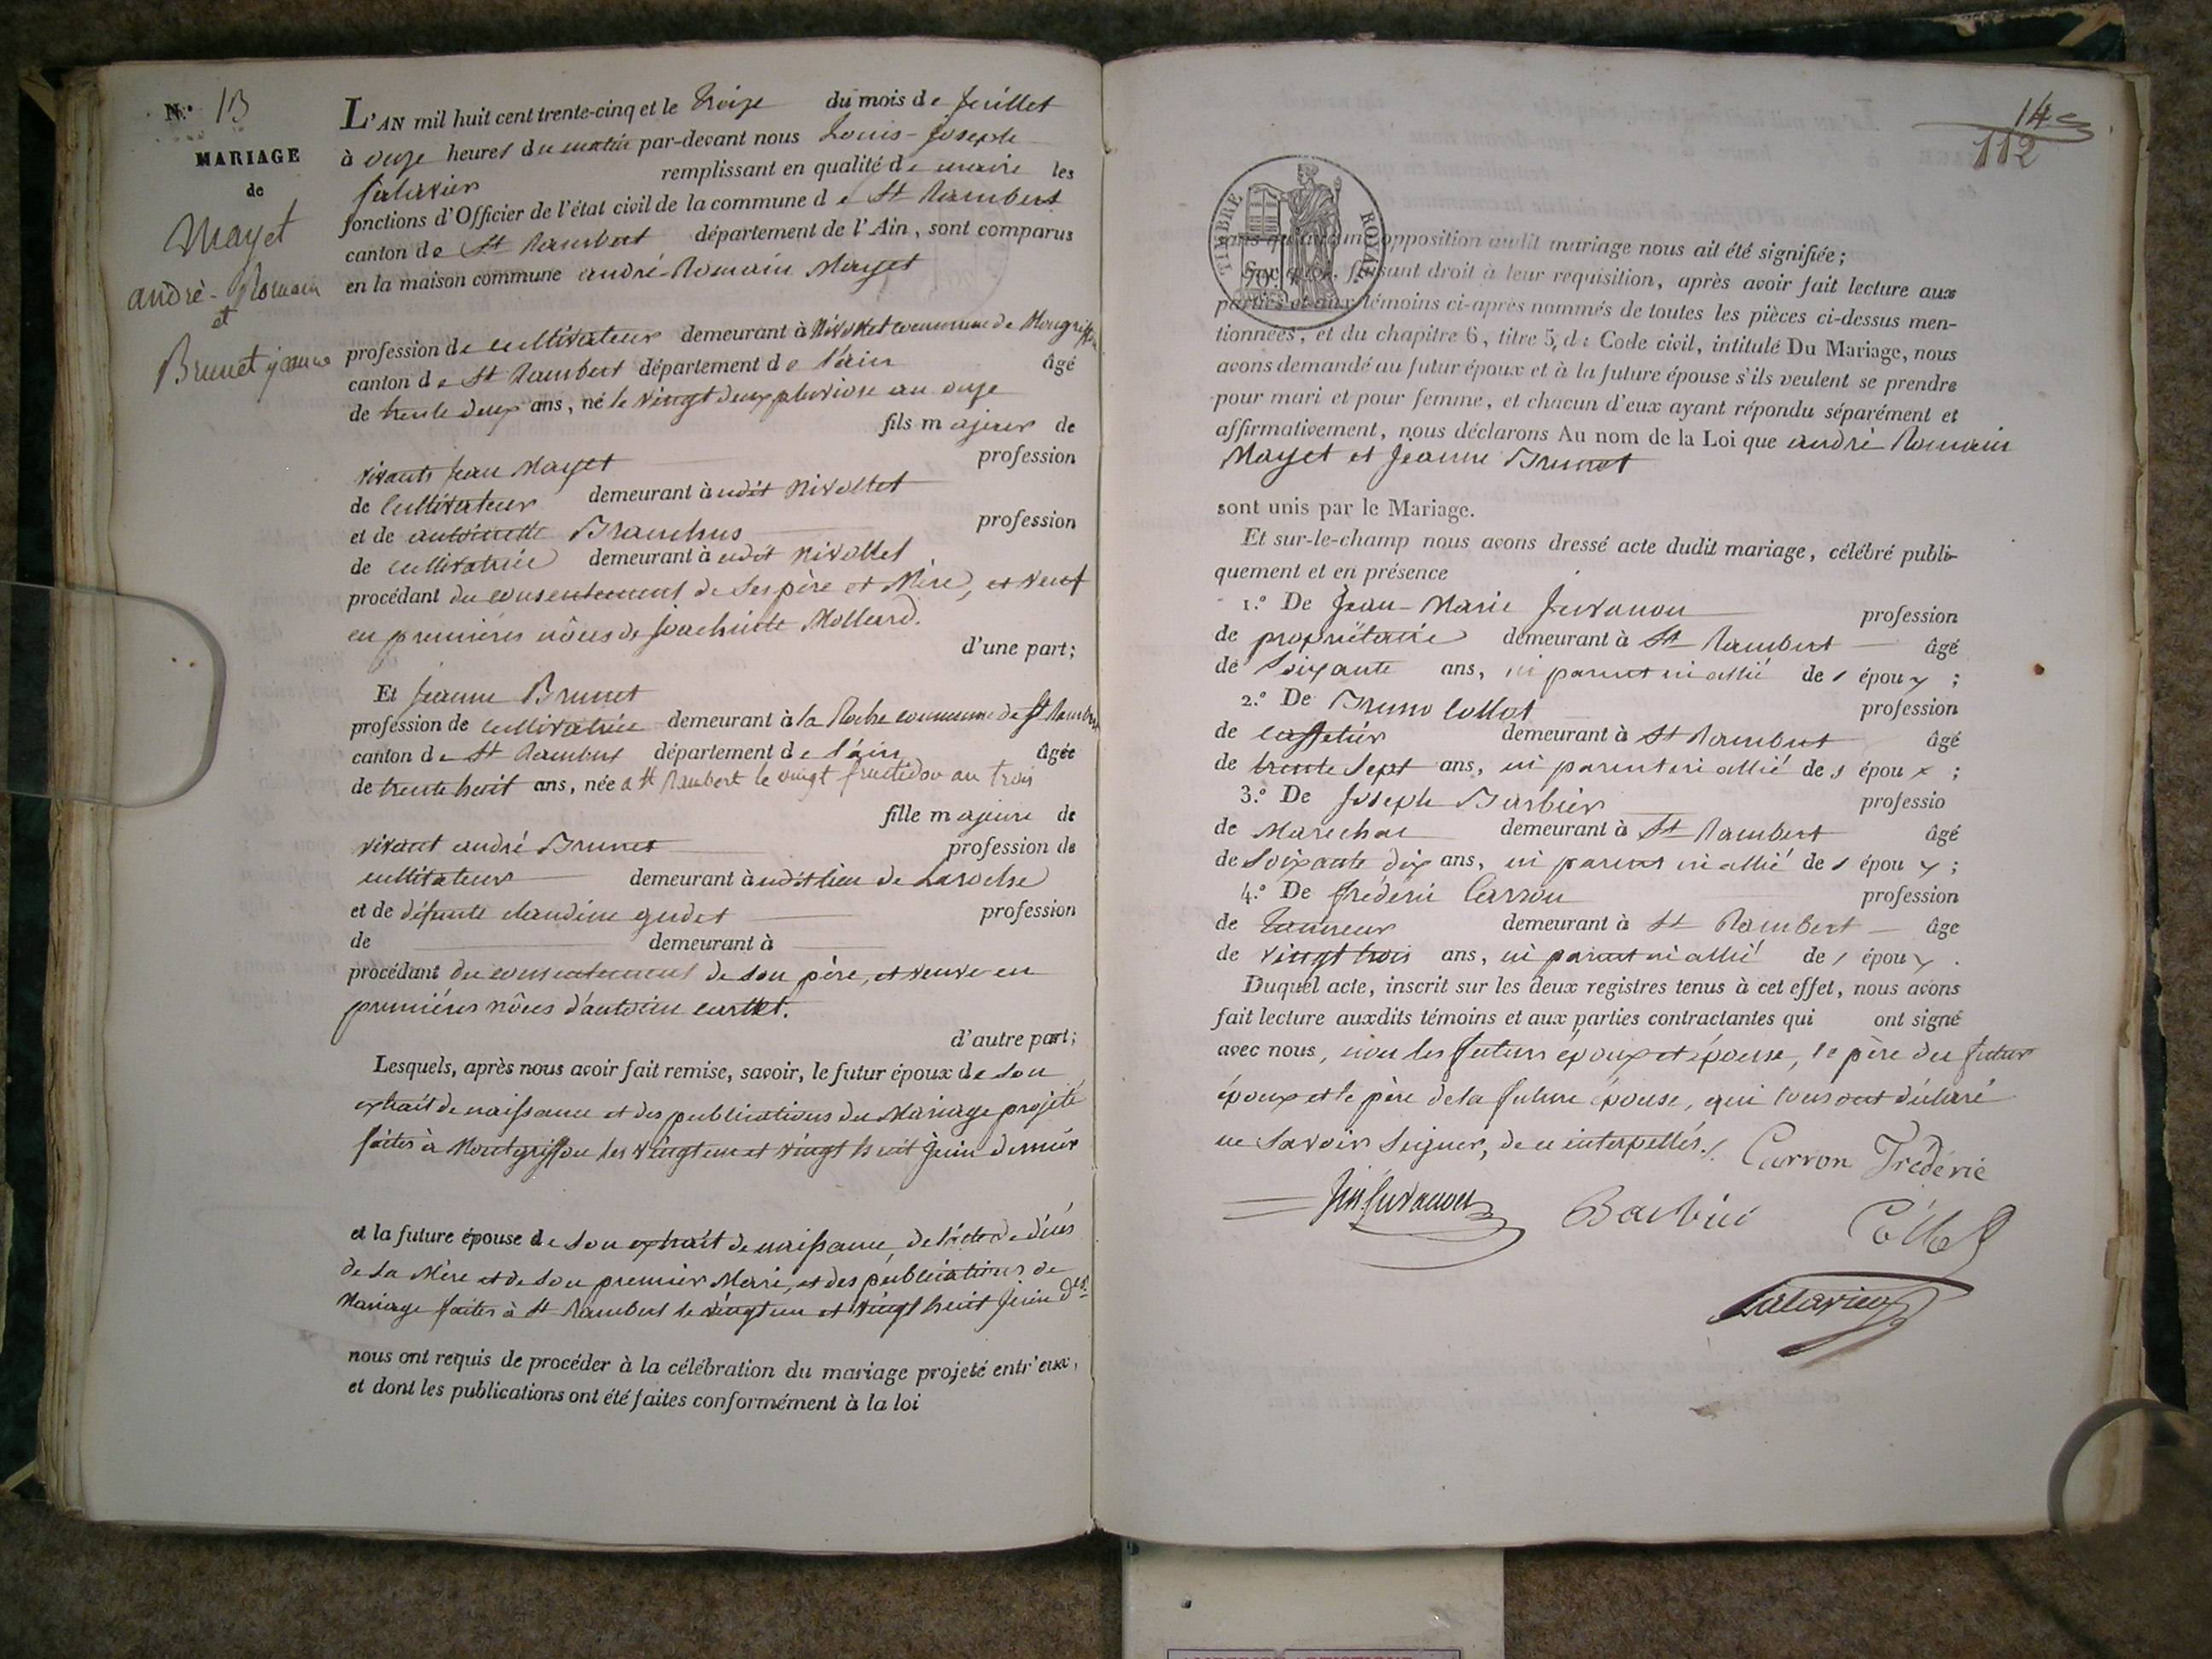 N.º 13
MARIAGE
de
Mayet
andrè-Romain
et
Brunet jeanne
L'AN mil huit cent trente-cinq et le treize du mois de juillet
à onze heures du matin par-devant nous Louis-Joseph
Salavier remplissant en qualité de maire les
fonctions d'Officier de l'état civil de la commune de St Rambert
canton de St Rambert département de l'Ain, sont comparus
en la maison commune andré-Romain Mayet
profession de cultivateur demeurant à Nivollet commune de Mongriffon
canton de St Rambert département de l'ain âgé
de trente deux ans, né le vingt deux pluviose an onze
fils majeur de
vivants Jean Mayet profession
de Cultivateur demeurant àudit Nivollet
et de antoinette Branchus profession
de cultivatrice demeurant àudit Nivollet
procédant du consentement de Ses père et Mère, et veuf
en premières nôces de Joachinte Mollard.
d'une part;
Et Jeanne Brunet
profession de cultivatrice demeurant à la Roche commune de St Rambert
canton de St Rambert département de l'ain âgée
de trente huit ans, née a St Rambert le vingt fructidor an trois
fille majeure de
vivant andré Brunet profession de
cultivateur demeurant àudit lieu de Laroche
et de défunte claudine gudet profession
de demeurant à
procédant du consentement de son père, et veuve en
premières nôces d'antoine
d'autre part;
Lesquels, après nous avoir fait remise, savoir, le futur époux de son
extrait de naissance et des publications du Mariage projeté
faites à Montgriffon les vingt un et vingt huit Juin dernier
et la future épouse de son extrait de naissance, de l'acte de décès
de sa Mère et de son premier Mari, et des publications de
Mariage faites à St Rambert le vingt un et vingt huit Juin der.
nous ont requis de procéder à la célébration du mariage projeté entr'eux,
et dont les publications ont été faites conformément à la loi
14e
112
TIMBRE ROYAL
sans qu'aucune opposition audit mariage nous ait été signifiée;
Sur quoi, faisant droit à leur requisition, après avoir fait lecture aux
parties et aux témoins ci-après nommés de toutes les pièces ci-dessus men-
tionnées, et du chapitre 6, titre 5, du Code civil, intitulé Du Mariage, nous
avons demandé au futur époux et à la future épouse s'ils veulent se prendre
pour mari et pour femme, et chacun d'eux ayant répondu séparément et
affirmativement, nous déclarons Au nom de la Loi que andrè Romain
Mayet et Jeanne Brunet
sont unis par le Mariage.
Et sur-le-champ nous avons dressé acte dudit mariage, célébré publi-
quement et en présence
1.º De Jean-Marie Juvanon profession
de propriétaire demeurant à St Rambert âgé
de Soixante ans, ni parent ni allié des époux;
2.º De Bruno Collot profession
de caffetier demeurant à St Rambert âgé
de trente Sept ans, ni parent ni allié des époux;
3.º De Joseph Barbier professio
de Marechal demeurant à St Rambert âgé
de Soixante dix ans, ni parent ni allié des époux;
4.º De frédéric Carron profession
de tanneur demeurant à St Rambert âge
de vingt trois ans, ni parent ni allié des époux.
Duquel acte, inscrit sur les deux registres tenus à cet effet, nous avons
fait lecture auxdits témoins et aux parties contractantes qui ont signé
avec nous, non les futurs époux et épouse, le père du futur
époux et le père de la future épouse, qui tous ont déclaré
ne Savoir Signer, de ce interpellés./. Carron Frédéric
Jm Juvanon Barbier Collot
Salavier